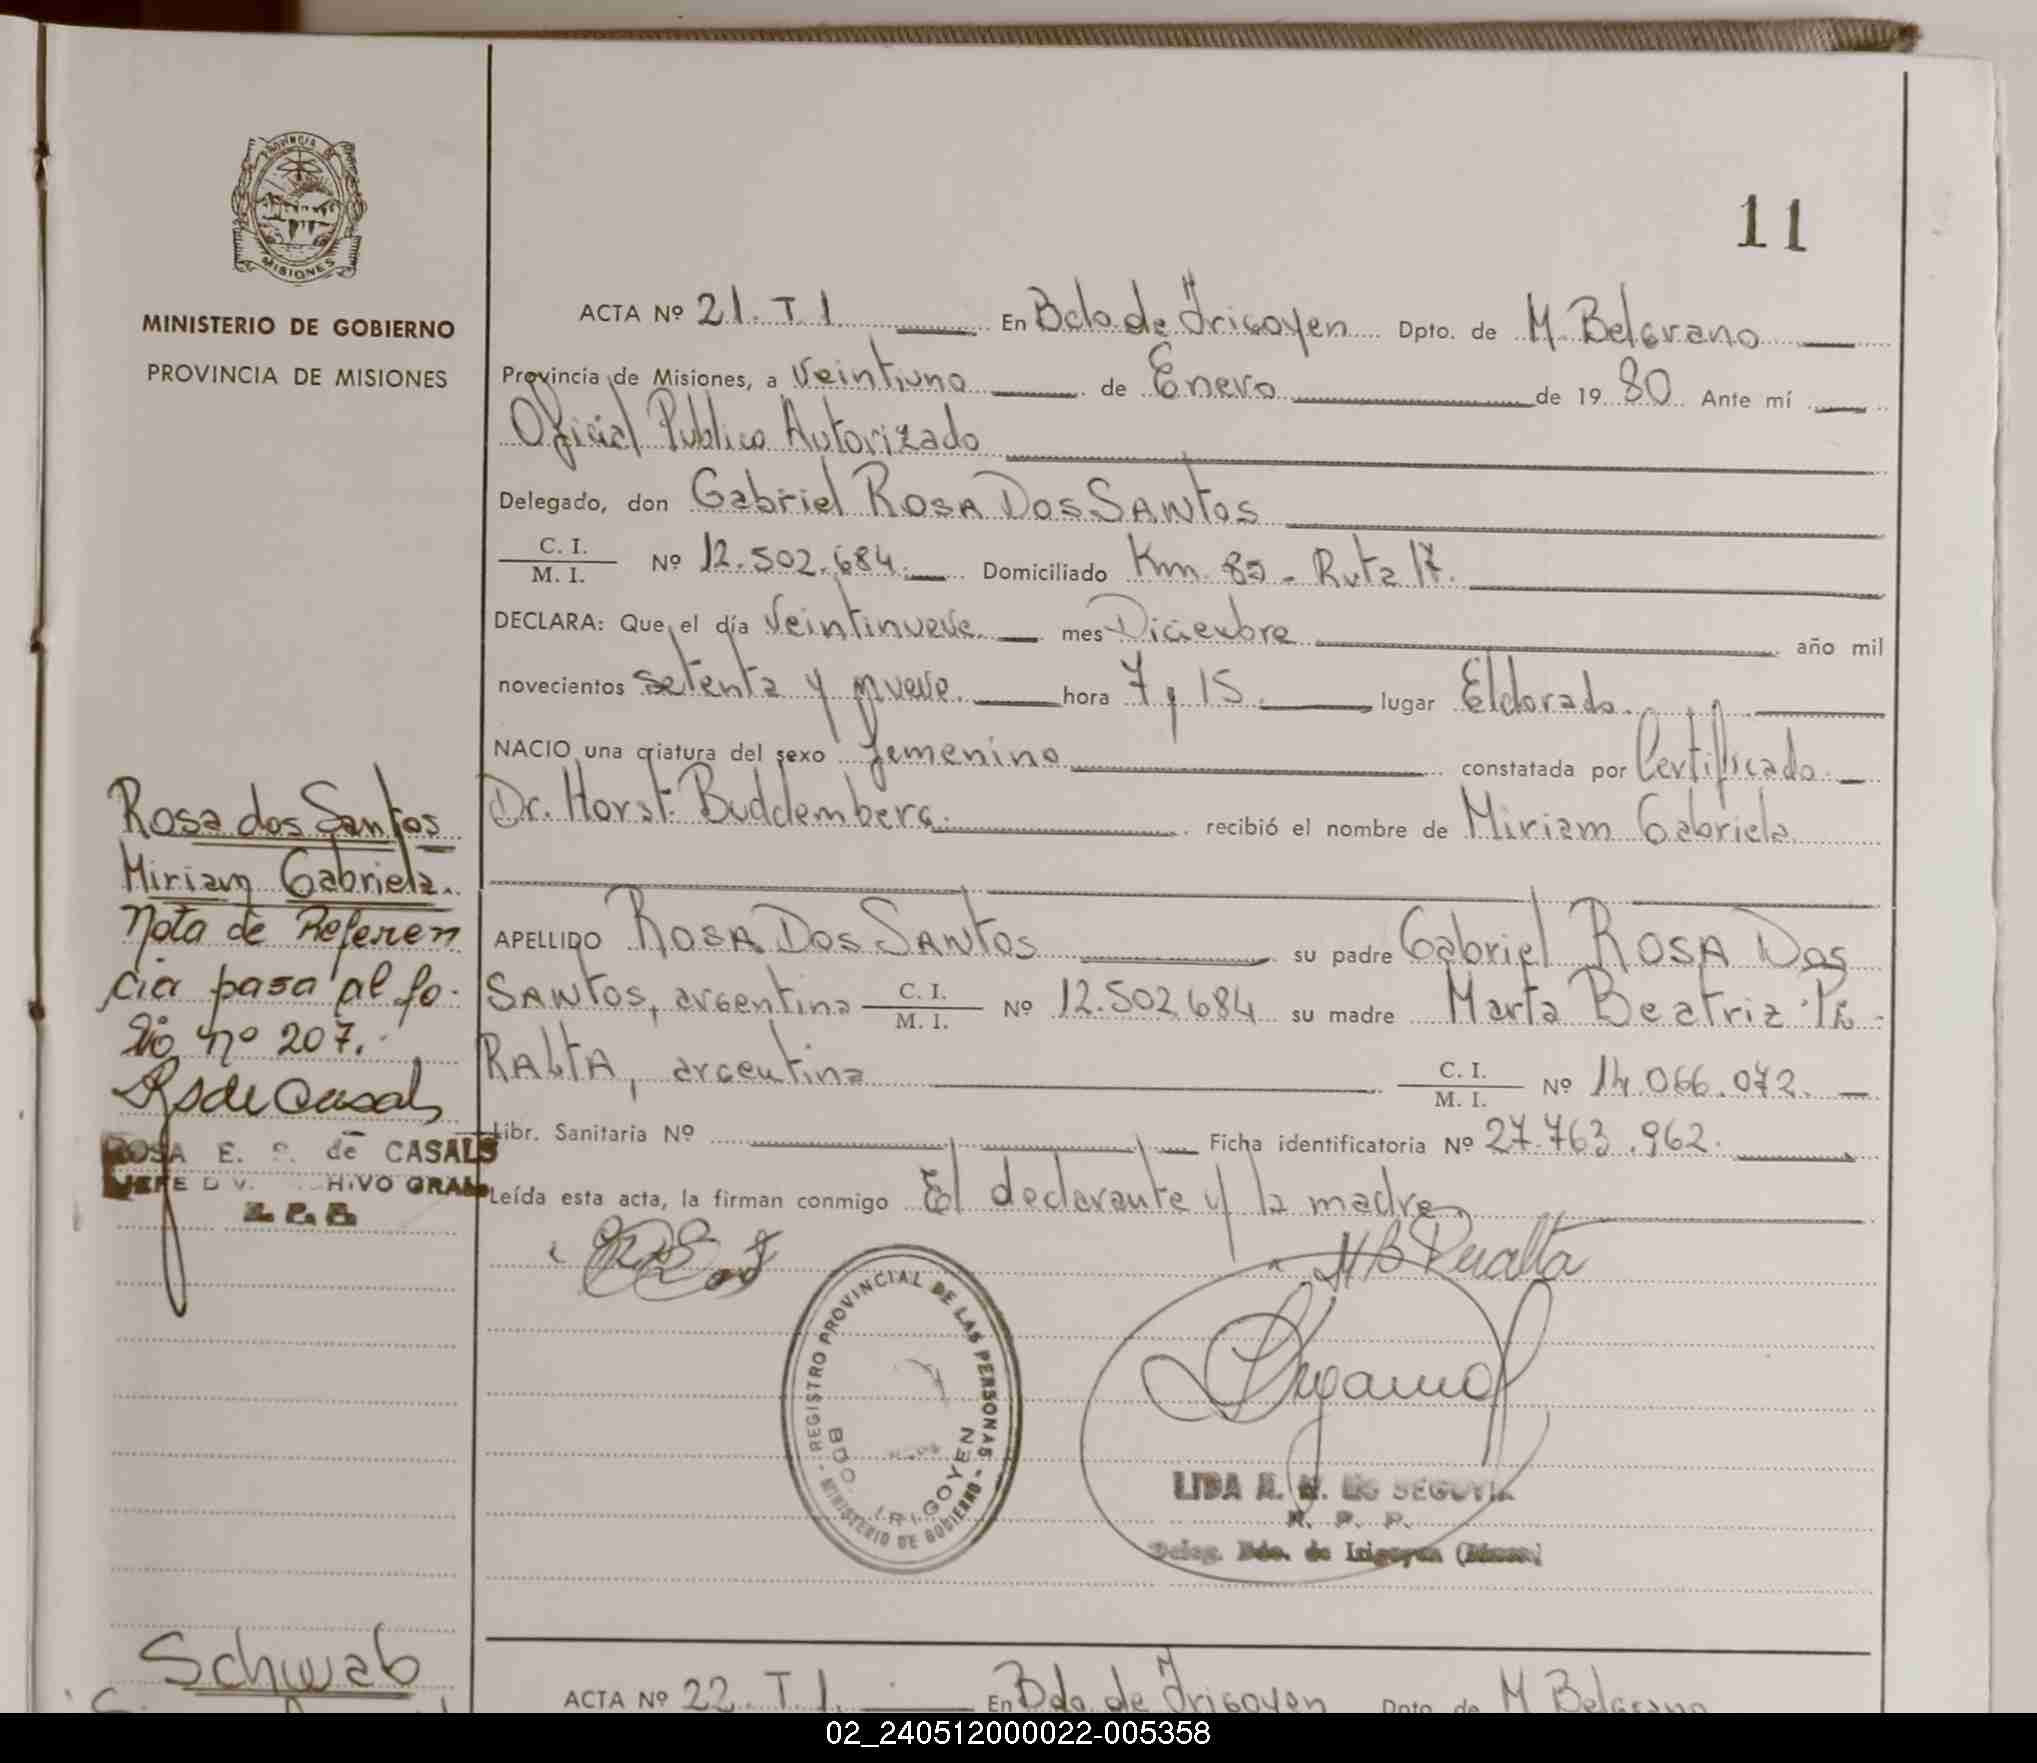 11
PROVINCIA DE
MISIONES
MINISTERIO DE GOBIERNO
PROVINCIA DE MISIONES
ACTA Nº 21. T 1. En Bdo. de Irigoyen Dpto. de M. Belgrano
Provincia de Misiones, a veintiuno de Enero de 19 80 Ante mí
Oficial Publico Autorizado
Delegado, don Gabriel ROSA DOS SANTOS
C. I.
M. I. Nº 12.502.684. Domiciliado Km. 80 - Ruta 17.
DECLARA: Que el día Veintinueve mes Diciembre año mil
novecientos setenta y nueve. hora 7 y 15. lugar Eldorado.
NACIO una criatura del sexo femenino constatada por Certificado
Dr. Horst Buddemberg. recibió el nombre de Miriam Gabriela
APELLIDO ROSA DOS SANTOS su padre Gabriel ROSA DOS
SANTOS, argentina C. I. M. I. Nº 12.502.684 su madre Marta Beatriz PE-
RALTA, argentina C. I. M. I. Nº 14.066.072.
Libr. Sanitaria Nº Ficha identificatoria Nº 27.763.962.
Leída esta acta, la firman conmigo El declarante y la madre.
MB Peralta
REGISTRO PROVINCIAL DE LAS PERSONAS
- MINISTERIO DE GOBIERNO -
BDO. IRIGOYEN
LIDA
Deleg. Bdo. de Irigoyen
Rosa dos Santos
Miriam Gabriela.
Nota de Referen
cia pasa al fo-
lio nº 207.
RsdeCasals
ROSA E. de CASALS
JEFE DIV. ARCHIVO GRAL
Schwab
ACTA Nº 22. T 1. En Bdo. de Irigoyen Dpto. de M Belgrano
02_240512000022-005358